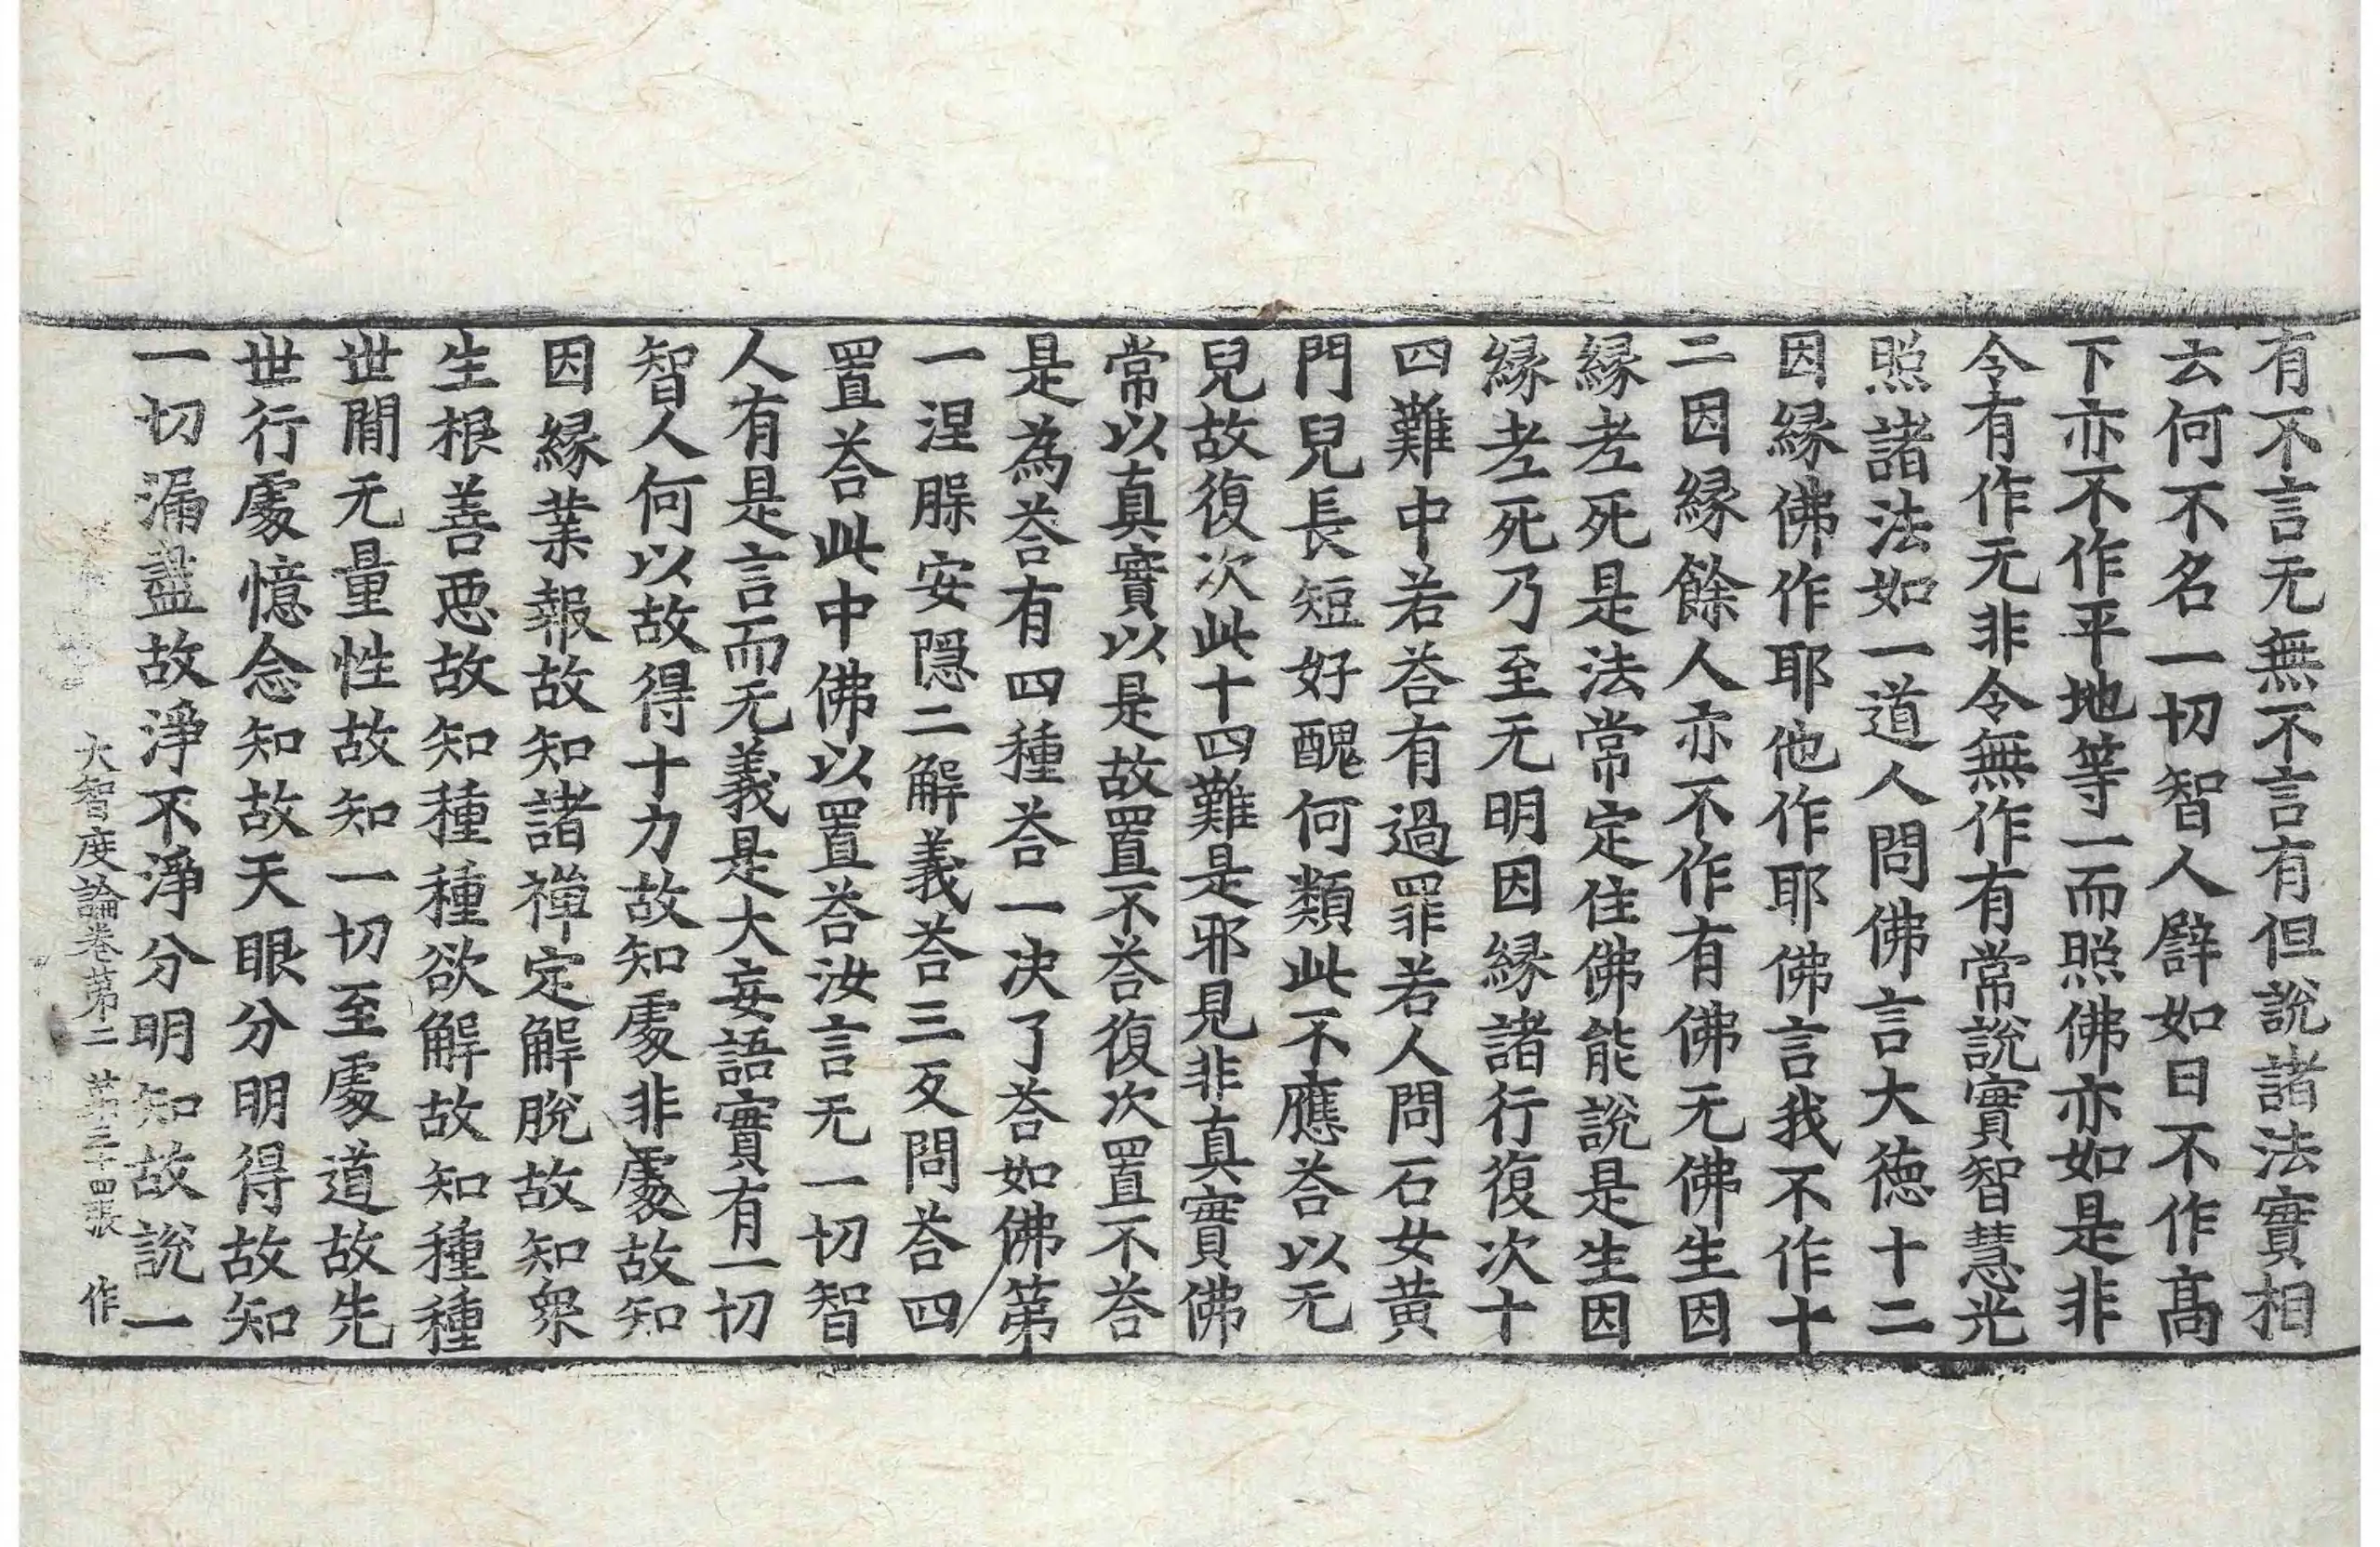 有不言无無不言有但說諸法實相
云何不名一切智人譬如日不作髙
下亦不作平地等一而照佛亦如是非
令有作无非令無作有常說實智慧光
照諸法如一道人問佛言大德十二
因縁佛作耶他作耶佛言我不作十
二因縁餘人亦不作有佛无佛生因
縁老死是法常定住佛能說是生因
縁老死乃至无明因縁諸行復次十
四難中若荅有過罪若人問石女黄
門兒長短好醜何類此不應荅以无
兒故復次此十四難是邪見非真實佛
常以真實以是故置不荅復次置不荅
是為荅有四種荅一决了荅如佛第
一涅槃安隱二解義荅三反問荅四
置荅此中佛以置荅汝言无一切智
人有是言而无義是大妄語實有一切
智人何以故得十力故知處非處故知
因縁業報故知諸禪定解脫故知衆
生根善惡故知種種欲解故知種種
世間无量性故知一切至處道故先
世行處憶念知故天眼分明得故知
一切漏盡故淨不淨分明知故說一
大智度論卷第二 第三十四張 作